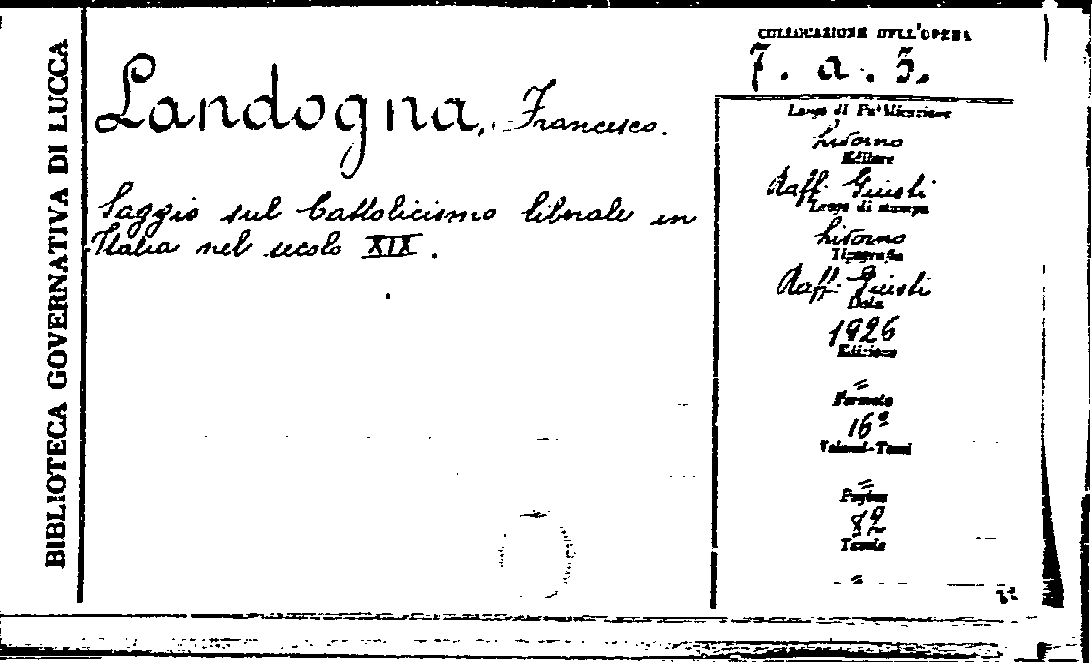 BIBLIOTECA GOVERNATIVA DI LUCCA
COLLOCAZIONE DELL'OPERA
7. a. 5.
Landogna, Francesco.
Saggio sul Cattolicismo liberale in
Italia nel secolo XIX.
Luogo di Pubblicazione
Livorno
Editore
Raff. Giusti
Luogo di stampa
Livorno
Tipografia
Raff. Giusti
Data
1926
Edizione
=
Formato
16º
Volumi-Tomi
=
Pagine
82
Tavole
=